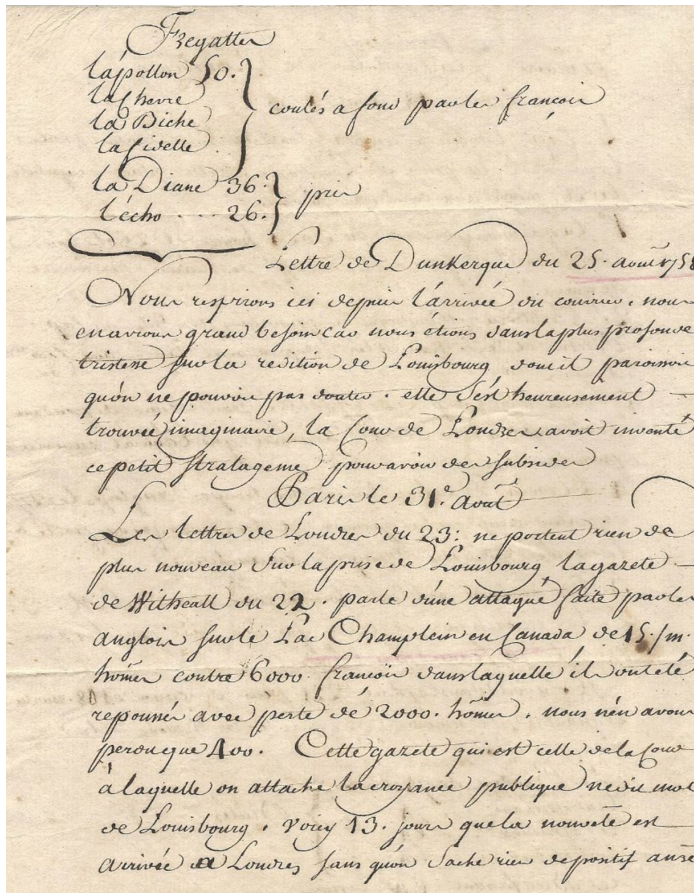 Fregattes
l'ápollon 50.
la chevre
la Biche
la fidelle
coulés a fond par les françois
la Diane 36.
l'écho .... 26.
pris
Lettre de Dunkerque du 25. aoust 1758
Nous respirons ici depuis l'arrivée du courier, nous
en avions grand besoin car nous étions dans la plus profonde
tristesse sur la redition de Louisbourg dont il paroissoit
qu'on ne pouvoit pas douter. elle s'est heureusement
trouvée imaginaire, la Cour de Londres avoit inventé
ce petit stratageme pour avoir des subsides
Paris le 31.e aout
Les lettres de Londres du 23: ne portent rien de
plus nouveau sur la prise de Louisbourg la gazete
de Witheall du 22. parle d'une attaque faite par les
anglois sur le Lac Champlein en Canada de 15/m.
hômes contre 6000 françois dans laquelle il ont été
repoussés avec perte de 2000. hômes, nous n'en avons
perdu que 400. Cette gazete qui est celle de la Cour
á laquelle on attache la croyance publique ne dit mot
de Louisbourg. voicy 13. jours que la nouvelle est
arrivée a Londres sans qu'on sache rien de positif